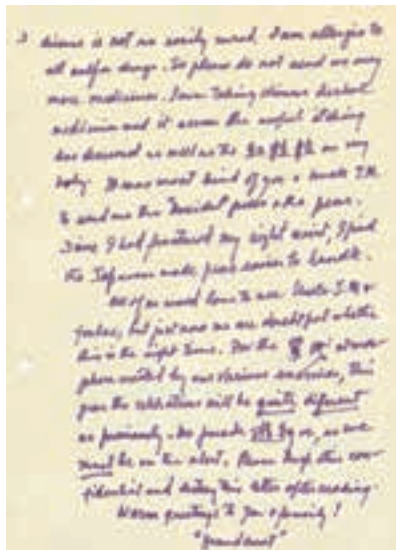 disease is not so easily cured. I am allergic to
all sulfa drugs. So please do not send me any
more medicines. I am taking Chinese herbal
medicine and it seems the awful itching
has decreased as well as the on my
body. It was most kind of you + Uncle I.M.
to send me the pens + the pens.
Since I had fractured my right wrist, I find
the Japanese made pens easier to handle.
All of us would love to see Uncle I.M. +
but just now we are doubtful whether
this is the right time. For the
by our various enemies, this
year the celebrations will be quite different
as previously. No parade , as we
must be on the alert. Please keep this con-
fidential and destroy this letter after reading.
Warm greetings to you + family!
"Grand aunt"